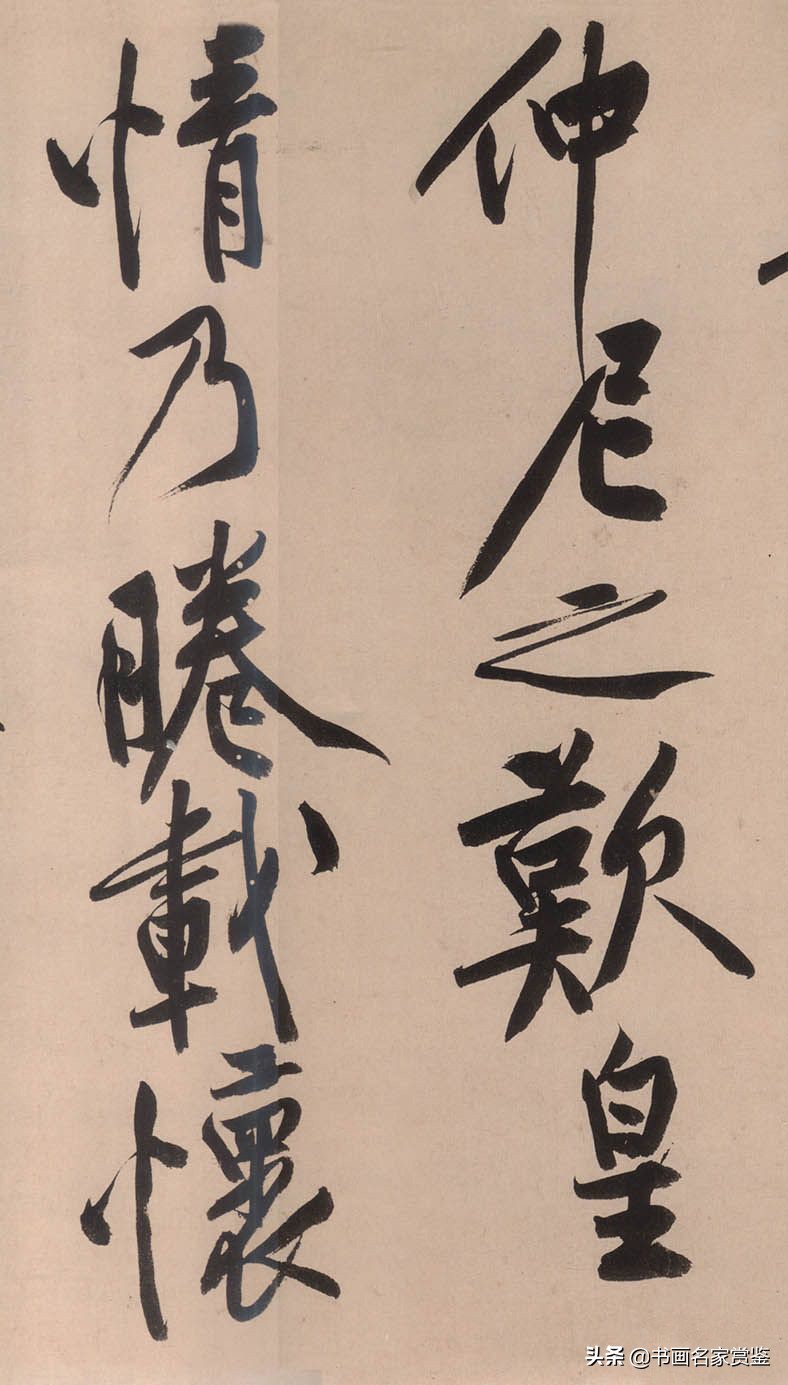 仲尼之歎皇
情乃睠載懷
头条 @书画名家赏鉴